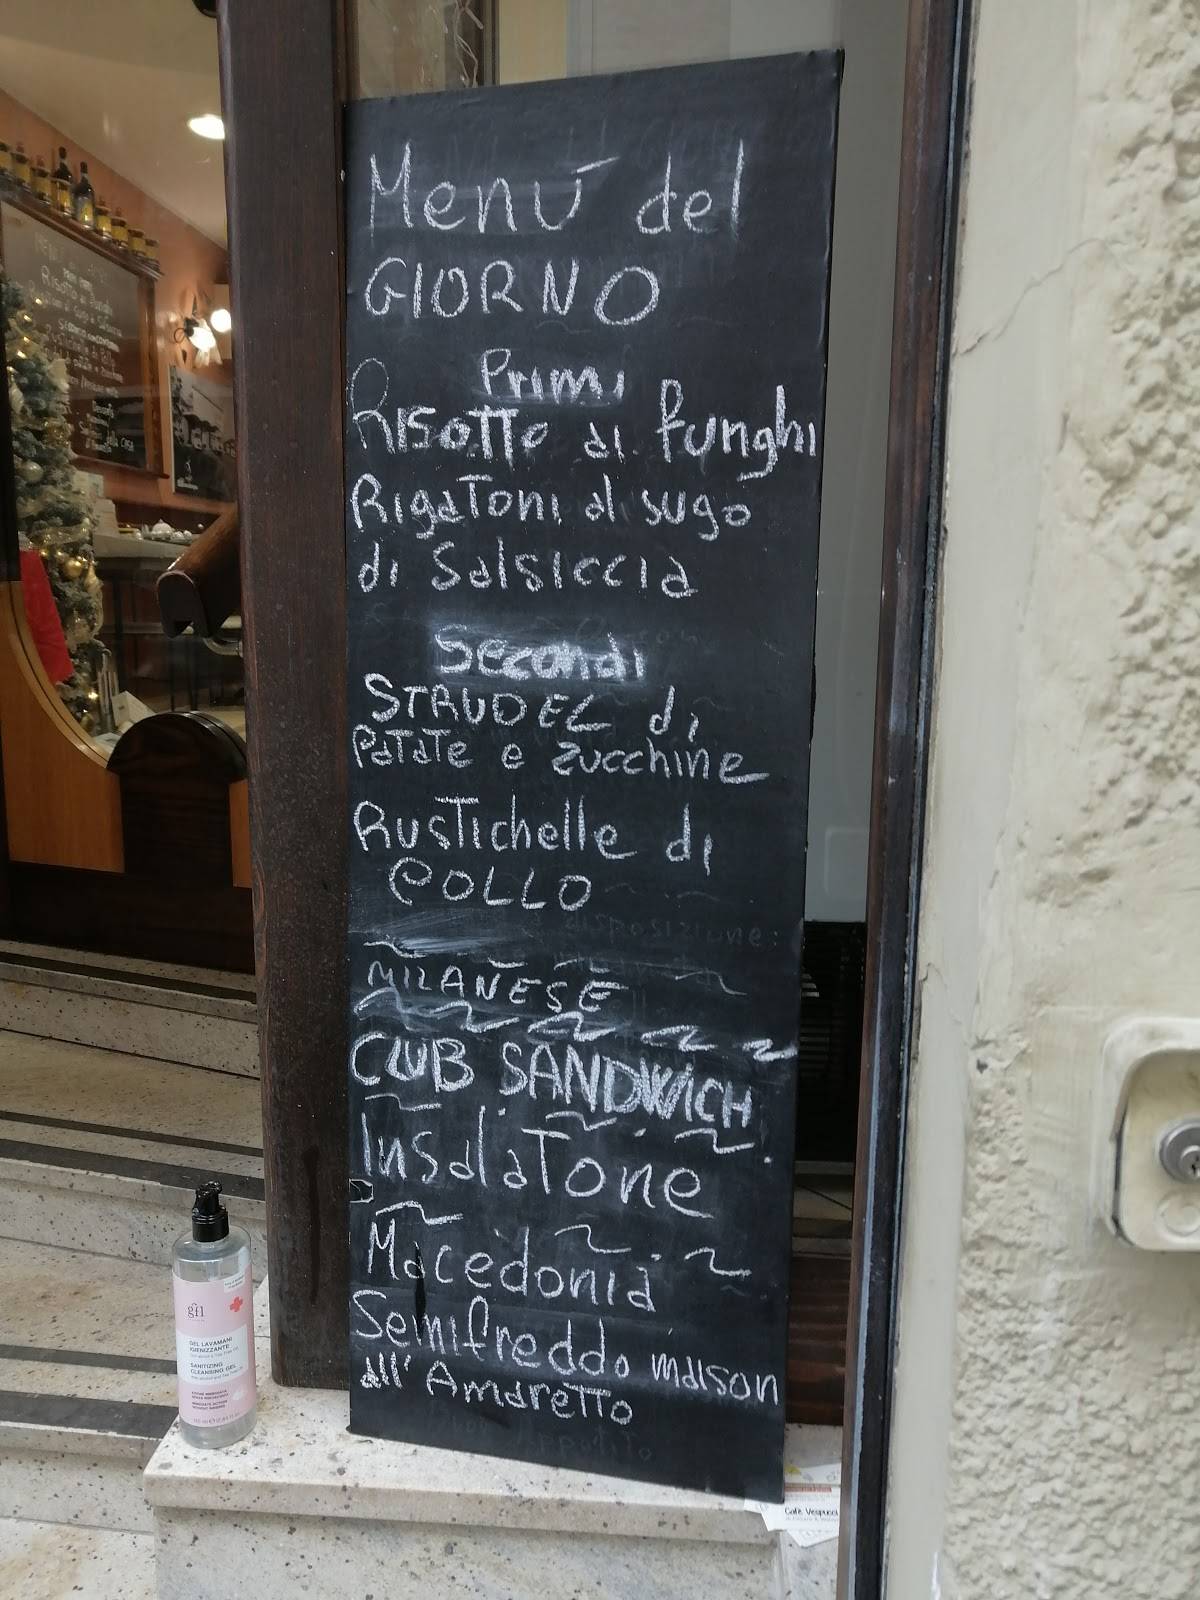 Menú del
GIORNO
Primi
Risotto ai funghi
Rigatoni al sugo
di Salsiccia
Secondi
STRUDEL di
Patate e zucchine
Rustichelle di
POLLO
disposizione:
MILANESE
CLUB SANDWICH
Insalatone
Macedonia
Semifreddo maison
all'Amaretto
Appetito
gfl
GEL LAVAMANI
IGIENIZZANTE
SANITIZING
CLEANSING GEL
Cafè Vespucci